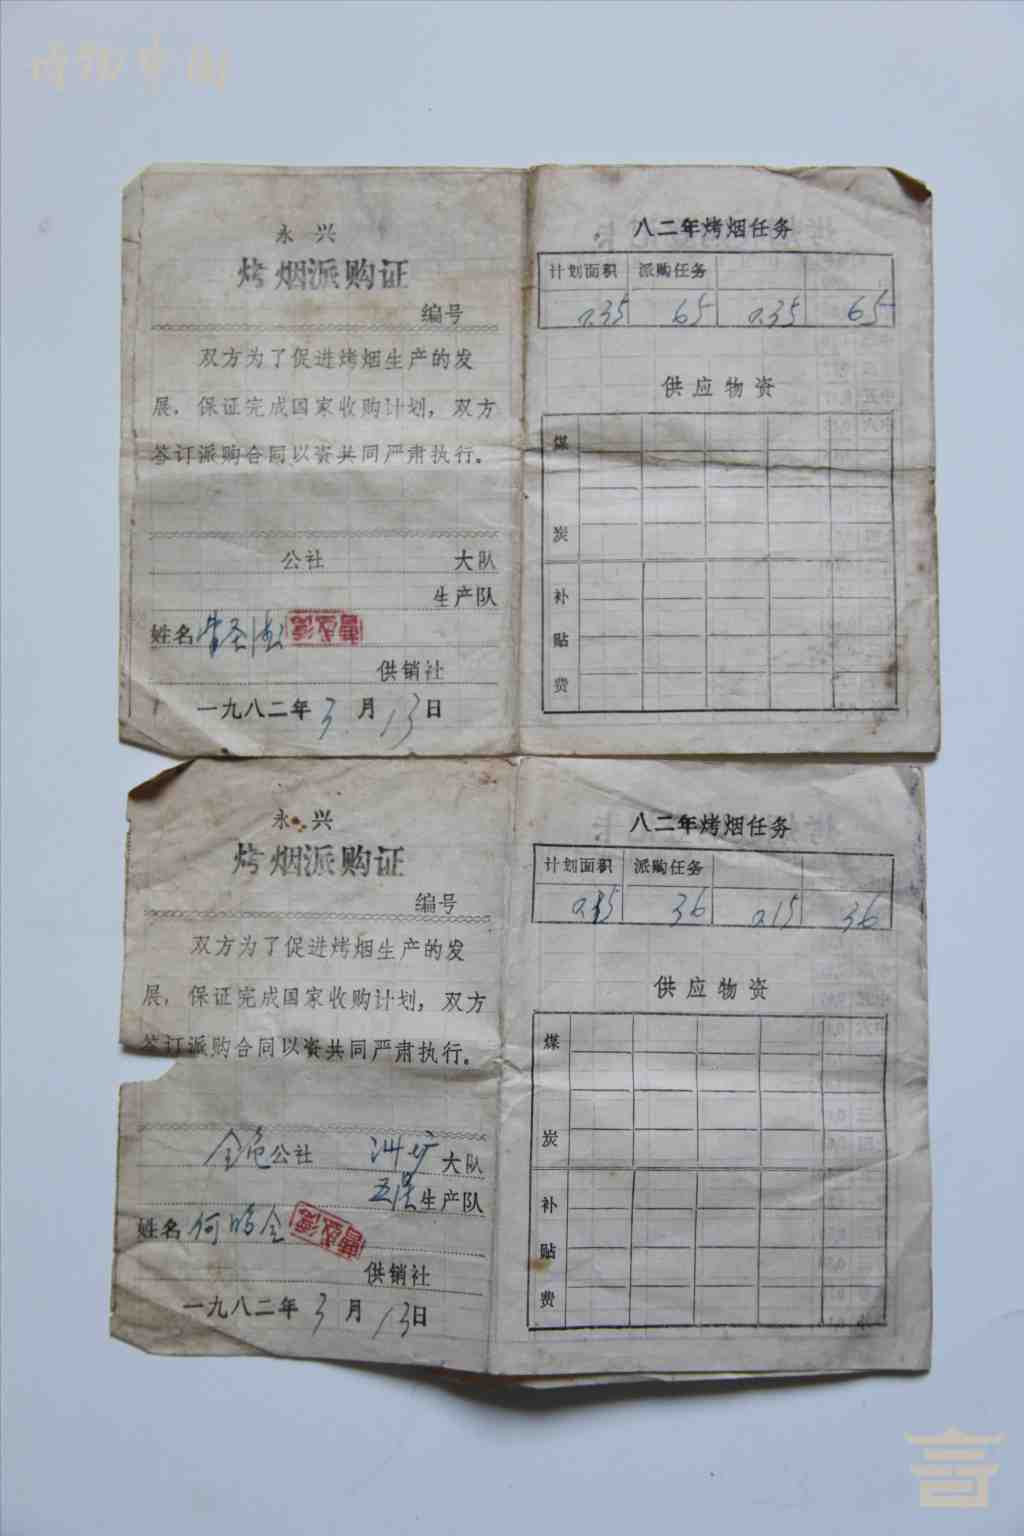 博物中国
永兴
烤烟派购证
编号
双方为了促进烤烟生产的发
展，保证完成国家收购计划，双方
签订派购合同以资共同严肃执行。
公社 大队
生产队
姓名
供销社
一九八二年3月13日
八二年烤烟任务
计划面积 派购任务
0.35 65 0.35 65
供应物资
煤
炭
补
贴
费
永兴
烤烟派购证
编号
双方为了促进烤烟生产的发
展，保证完成国家收购计划，双方
签订派购合同以资共同严肃执行。
公社 大队
生产队
姓名 何
供销社
一九八二年3月13日
八二年烤烟任务
计划面积 派购任务
0.15 36 0.15 36
供应物资
煤
炭
补
贴
费